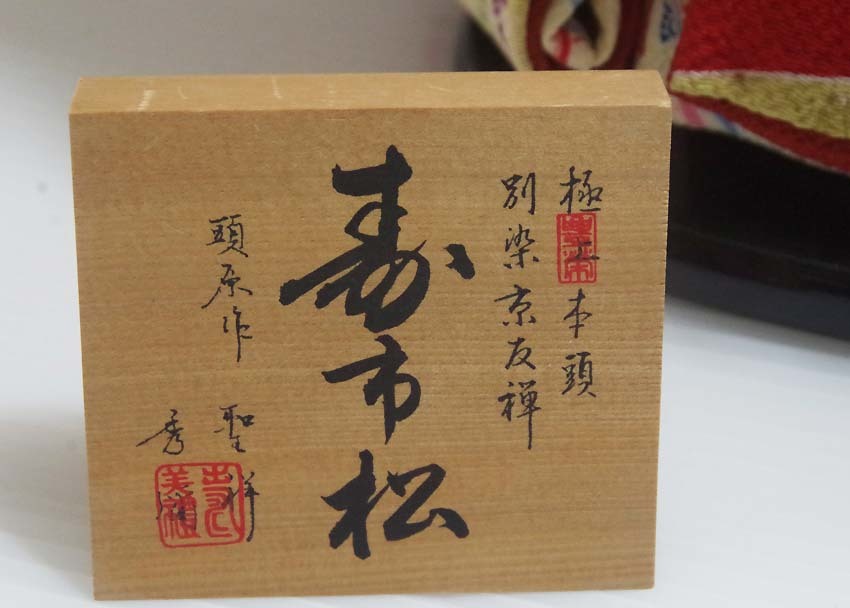 極上本頭
別染京友禅
寿市松
頭原作 聖祥
秀